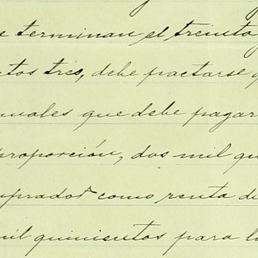 e terminan el treinta
tos tres, debe pactarse q
uales que debe pagar
proporción, dos mil qu
mprador como renta de
mil quinientos para la